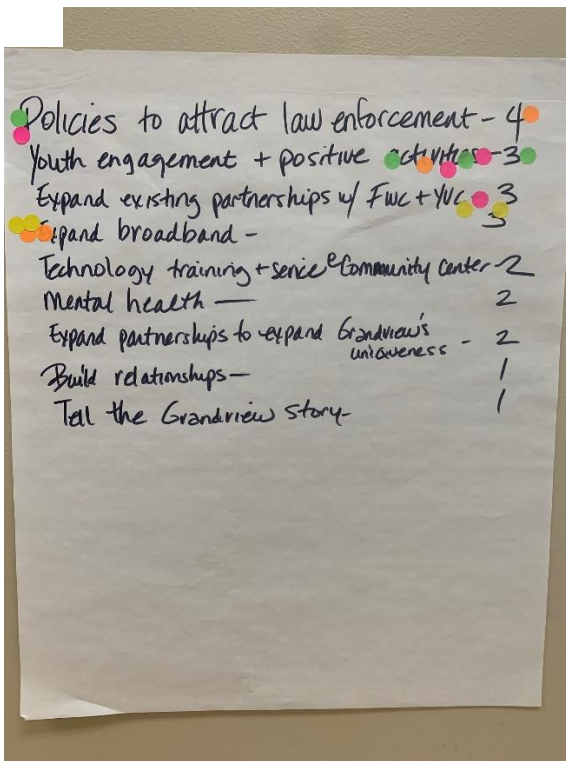 Policies to attract law enforcement - 4
Youth engagement + positive activities - 3
Expand existing partnerships w/ FWC + YVC - 3
Expand broadband - 3
Technology training + service @ Community Center - 2
Mental health - 2
Expand partnerships to expand Grandview's
uniqueness - 2
Build relationships - 1
Tell the Grandview Story - 1